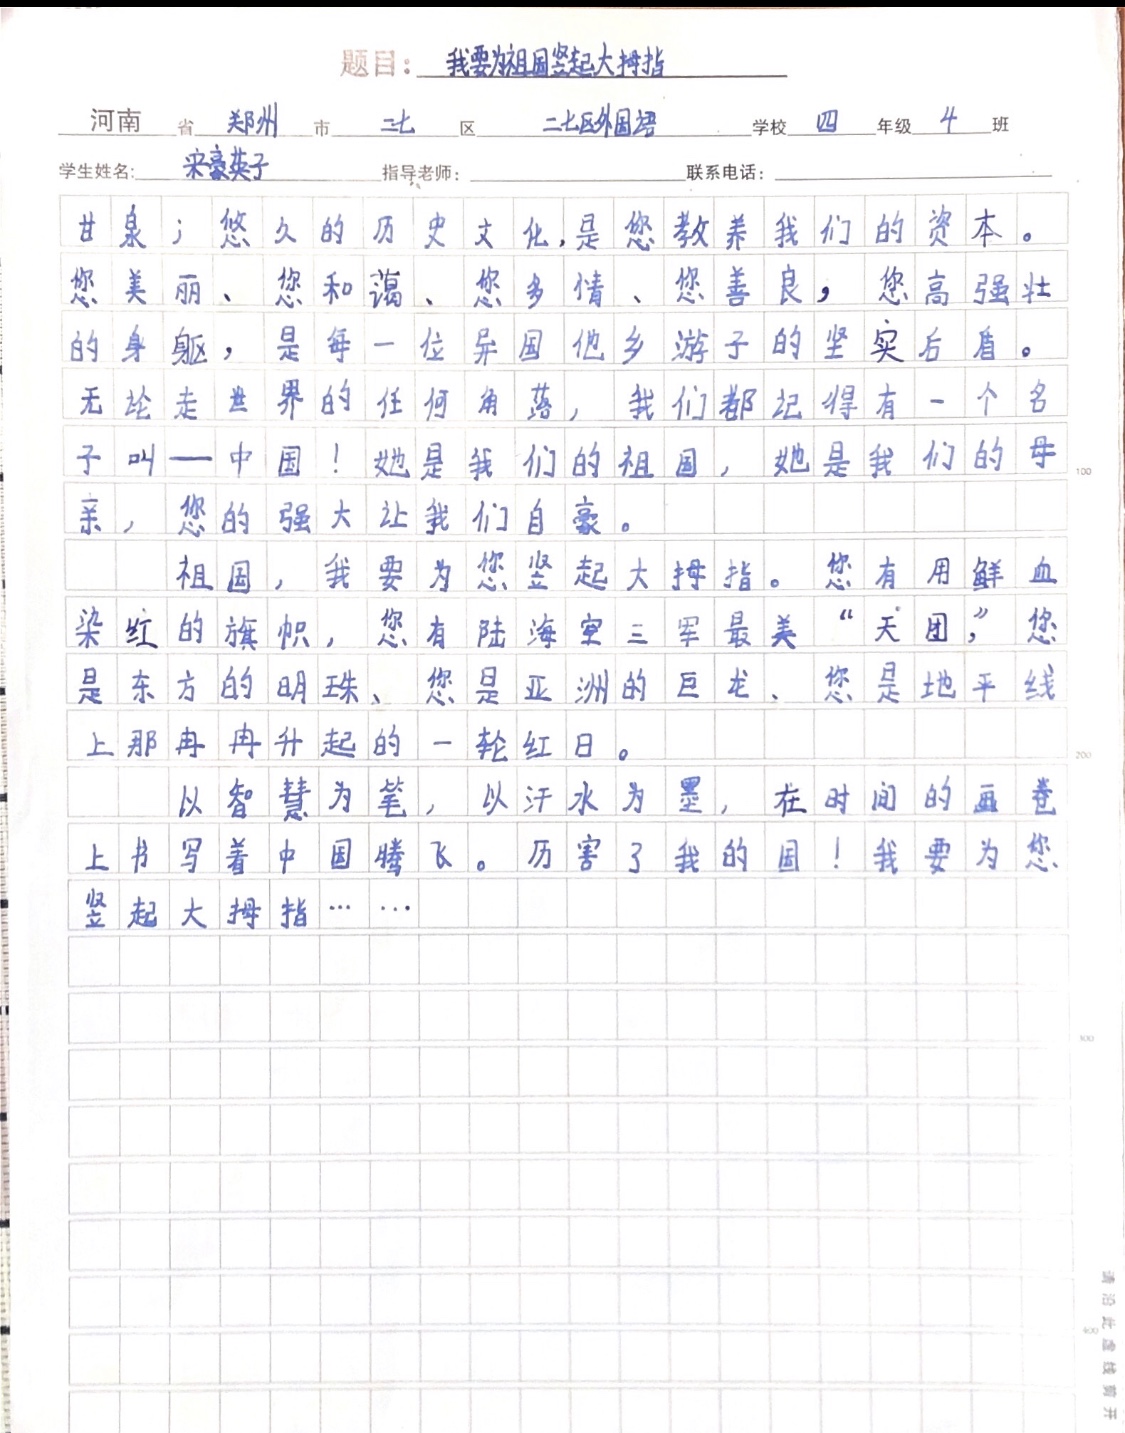 题目：我要为祖国竖起大拇指
河南省郑州市二七区二七区外国语学校四年级4班
学生姓名：宋豪英子 指导老师： 联系电话：
甘泉；悠久的历史文化，是您教养我们的资本。
您美丽、您和蔼、您多情、您善良，您高强壮
的身躯，是每一位异国他乡游子的坚实后盾。
无论走世界的任何角落，我们都记得有一个名
子叫—中国！她是我们的祖国，她是我们的母
亲，您的强大让我们自豪。
祖国，我要为您竖起大拇指。您有用鲜血
染红的旗帜，您有陆海空三军最美“天团”，您
是东方的明珠、您是亚洲的巨龙、您是地平线
上那冉冉升起的一轮红日。
以智慧为笔，以汗水为墨，在时间的画卷
上书写着中国腾飞。历害了我的国！我要为您
竖起大拇指……
100
200
300
400
请沿此虚线剪开